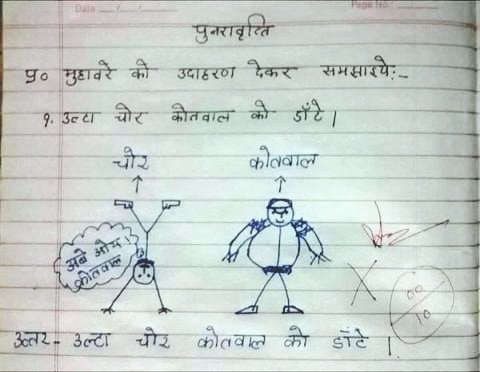 Date Page No.
पुनरावृत्ति
प्र० मुहावरे को उदाहरण देकर समझाइये:-
१. उल्टा चोर कोतवाल को डाँटे।
चोर कोतवाल
अबे ओय!
कोतवाल
00
10
उत्तर- उल्टा चोर कोतवाल को डाँटे।